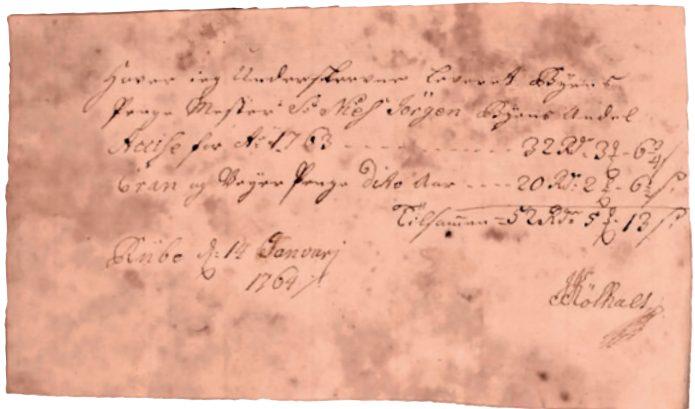 Haver ieg Underskrevne leveret Byens
Penge Mester Sr Niels Jörgen Byens Andel
Accise for Ao 1763 - - - - - - - - 32 Rdr 3 - 6
Cran og Veyer Penge dito Aar - - - - 20 Rdr 2 - 6
Tilsammen = 52 Rdr 5 - 13
Ribe d: 14 Januarj
1764